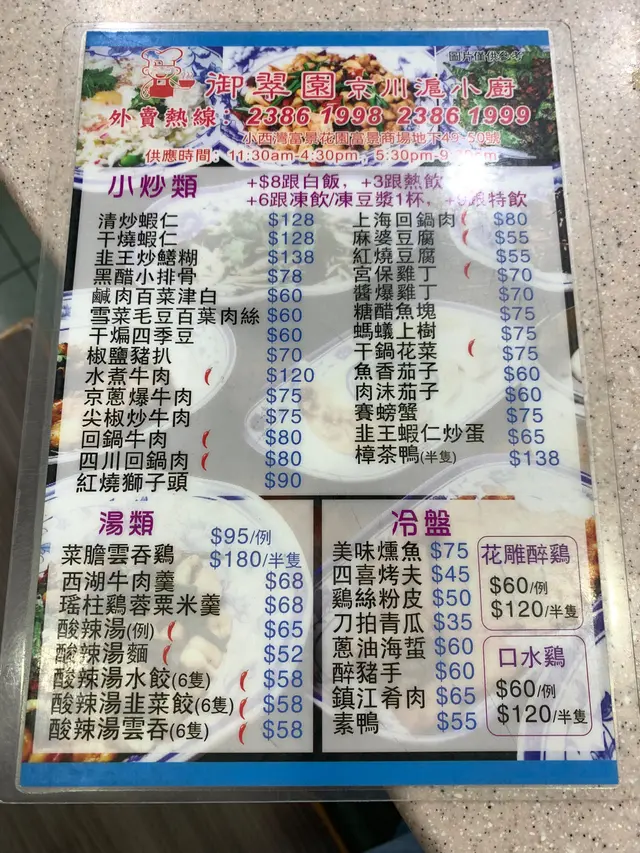 圖片僅供參考
御翠園京川滬小廚
外賣熱線：2386 1998 2386 1999
小西灣富景花園富景商場地下49-50號
供應時間：11:30am-4:30pm，5:30pm-9:
小炒類
+$8跟白飯，+3跟熱飲
+6跟凍飲/凍豆漿1杯，跟特飲
清炒蝦仁 $128
干燒蝦仁 $128
韭王炒鱔糊 $138
黑醋小排骨 $78
鹹肉百菜津白 $60
雪菜毛豆百葉肉絲 $60
干煸四季豆 $60
椒鹽豬扒 $70
水煮牛肉 $120
京蔥爆牛肉 $75
尖椒炒牛肉 $75
回鍋牛肉 $80
四川回鍋肉 $80
紅燒獅子頭 $90
上海回鍋肉 $80
麻婆豆腐 $55
紅燒豆腐 $55
宮保雞丁 $70
醬爆雞丁 $70
糖醋魚塊 $75
螞蟻上樹 $75
干鍋花菜 $75
魚香茄子 $60
肉沫茄子 $60
賽螃蟹 $75
韭王蝦仁炒蛋 $65
樟茶鴨(半隻) $138
湯類
菜膽雲吞鷄 $95/例
$180/半隻
西湖牛肉羹 $68
瑤柱鷄蓉粟米羹 $68
酸辣湯(例) $65
酸辣湯麵 $52
酸辣湯水餃(6隻) $58
酸辣湯韭菜餃(6隻) $58
酸辣湯雲吞(6隻) $58
冷盤
美味燻魚 $75
四喜烤夫 $45
鷄絲粉皮 $50
刀拍青瓜 $35
蔥油海蜇 $60
醉豬手 $60
鎮江肴肉 $65
素鴨 $55
花雕醉鷄
$60/例
$120/半隻
口水鷄
$60/例
$120/半隻